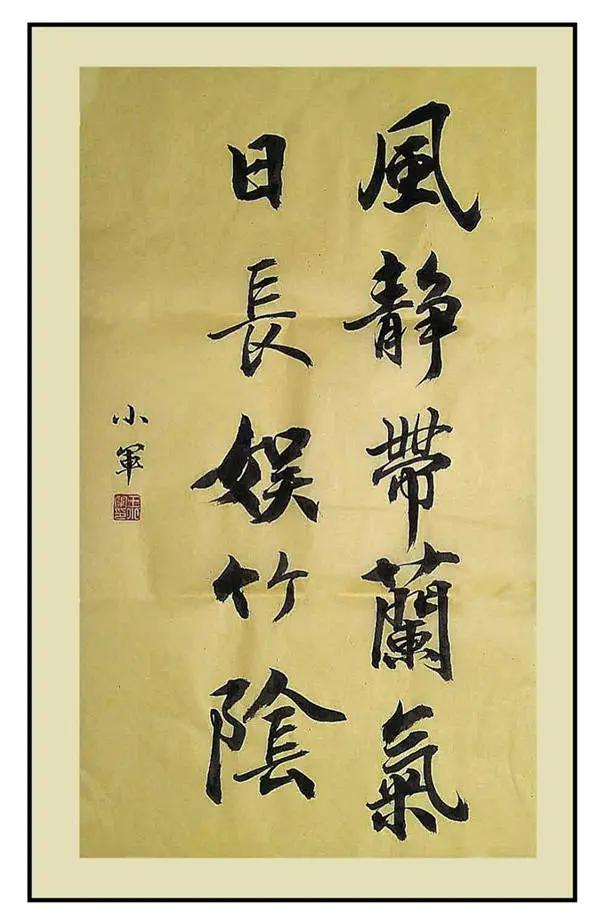 風静帶蘭氣
日長娯竹陰
小軍